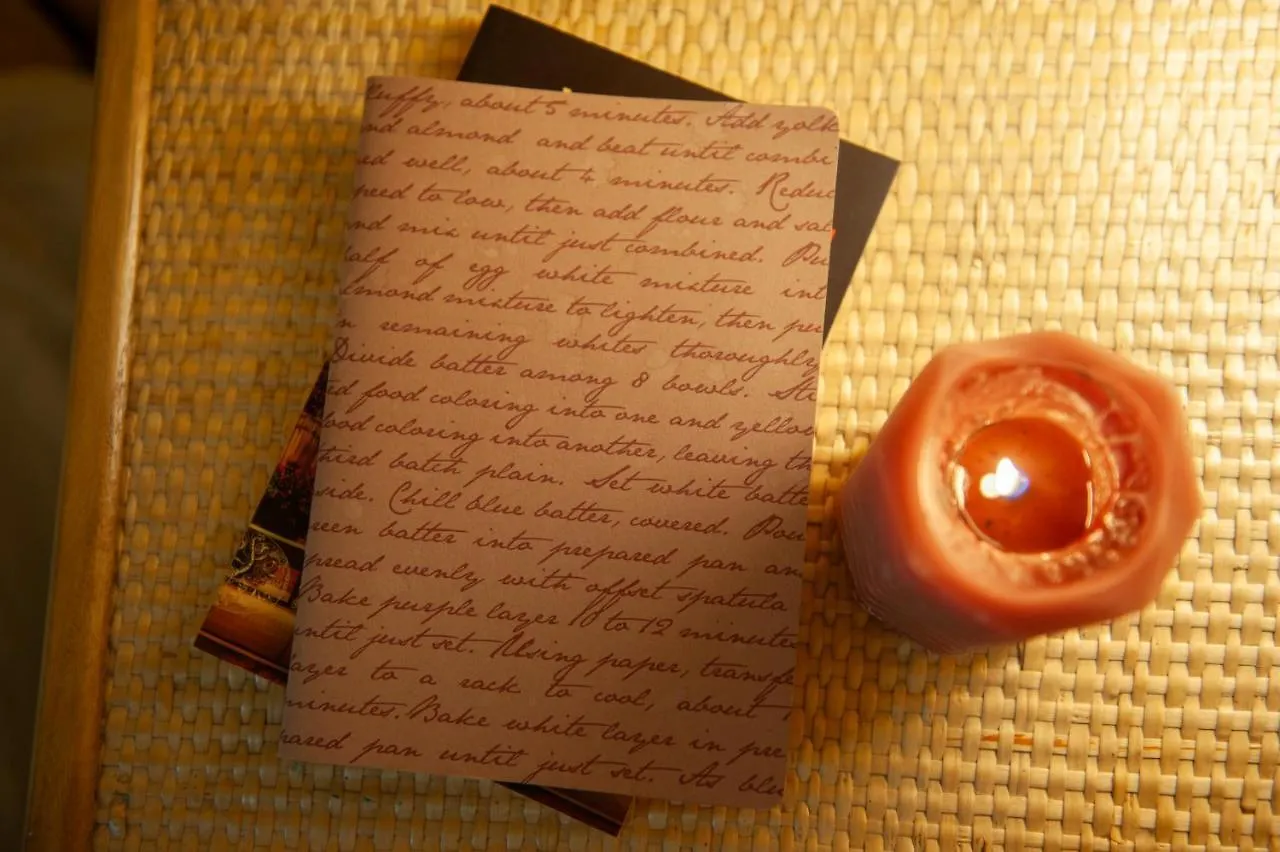 luffy, about 5 minutes. Add yolk
nd almond and beat until combi
ed well, about 4 minutes. Reduc
peed to low, then add flour and sal
nd mix until just combined. Pu
alf of egg white mixture int
lmond mixture to lighten, then pu
n remaining whites thoroughly
Divide batter among 8 bowls. Sti
ed food coloring into one and yellow
ood coloring into another, leaving th
hird batch plain. Set white batte
side. Chill blue batter, covered. Pou
reen batter into prepared pan an
pread evenly with offset spatula
Bake purple layer 10 to 12 minutes
until just set. Using paper, transfe
ayer to a rack to cool, about 1
minutes. Bake white layer in pre
pared pan until just set. As blu